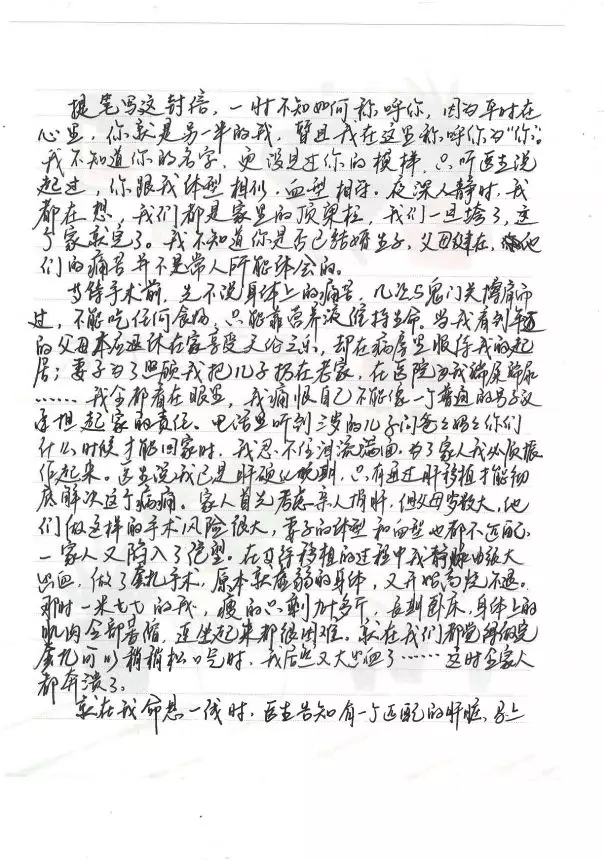 提笔写这封信，一时不知如何称呼你，因为平时在
心里，你就是另一半的我，暂且我在这里称呼你为“你”。
我不知道你的名字，更没见过你的模样，只听医生说
起过，你跟我体型相似，血型相符。夜深人静时，我
都在想，我们都是家里的顶梁柱，我们一旦垮了，这
个家就完了。我不知道你是否已结婚生子，父母健在，他
们的痛苦并不是常人所能体会的。
等待手术前，先不说身体上的痛苦，几次与鬼门关擦肩而
过，不能吃任何食物，只能靠营养液维持生命。当我看到年迈
的父母本应退休在家享受天伦之乐，却在病房里服侍我的起
居；妻子为了照顾我把儿子扔在老家，在医院为我端屎端尿
……我全都看在眼里，我痛恨自己不能像一个普通的男子汉
承担起家的责任。电话里听到三岁的儿子问爸爸妈妈你们
什么时候才能回家时，我忍不住泪流满面。为了家人我必须振
作起来。医生说我已是肝硬化晚期，只有通过肝移植才能彻
底解决这个病痛。家人首先考虑亲人捐肝，但父母岁数大，他
们做这样的手术风险很大，妻子的体型和血型也都不匹配，
一家人又陷入了绝望。在等待移植的过程中我静脉曲张大
出血，做了套扎手术，原本就虚弱的身体，又开始高烧不退。
那时一米七七的我，瘦的只剩九十多斤，长期卧床，身体上的
肌肉全部萎缩，连坐起来都很困难。就在我们都觉得做完
套扎可以稍稍松口气时，我居然又大出血了……这时全家人
都奔溃了。
就在我命悬一线时，医生告知有一个匹配的肝脏，马上